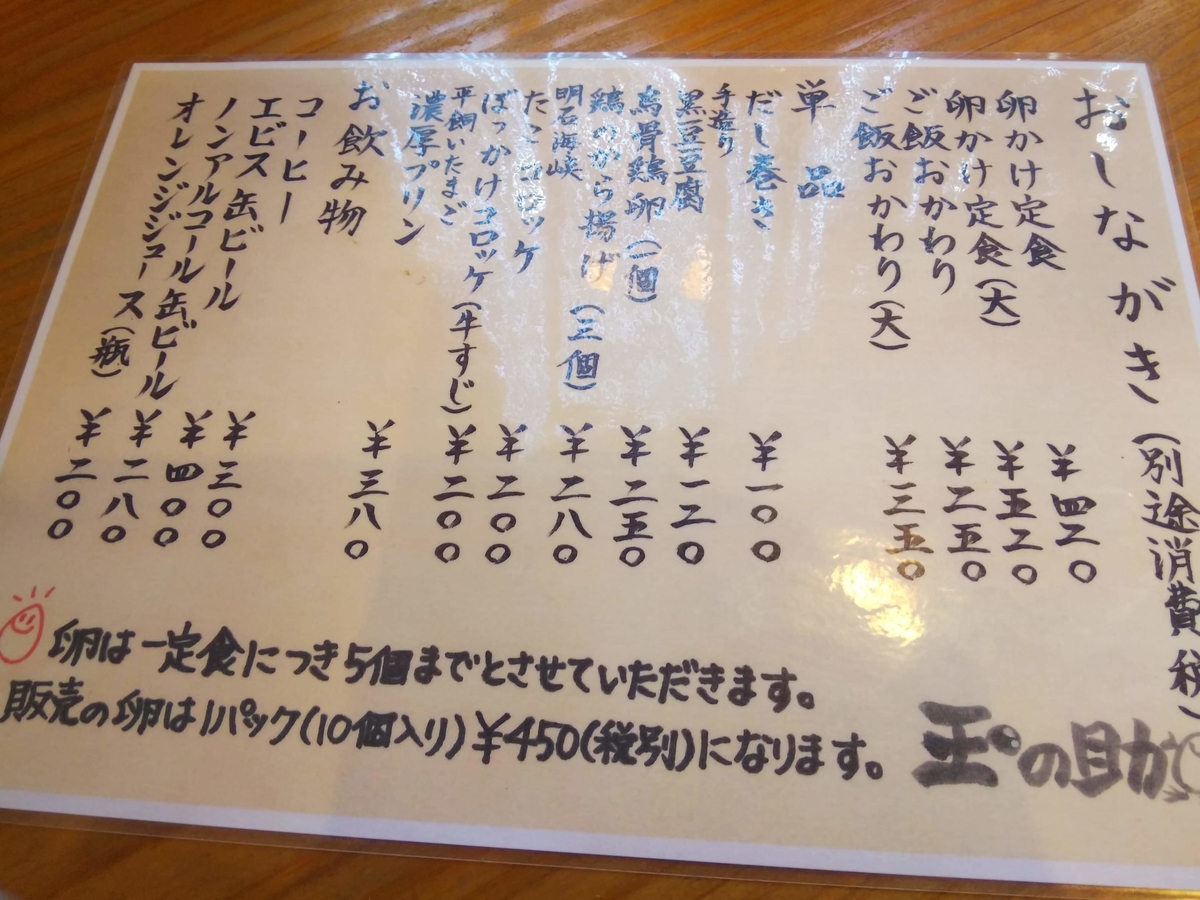 おしながき(別途消費税)
卵かけ定食 ¥四二〇
卵かけ定食(大) ¥五二〇
ご飯おかわり ¥二五〇
ご飯おかわり(大) ¥三五〇
単品
だし巻き ¥一〇〇
手造り
黒豆豆腐 ¥一二〇
烏骨鶏卵(一個) ¥二五〇
鶏のから揚げ(三個) ¥二八〇
明石海峡
たこコロッケ ¥二〇〇
ぼっかけコロッケ(牛すじ) ¥二〇〇
平飼いたまご
濃厚プリン ¥三八〇
お飲み物
コーヒー ¥三〇〇
エビス缶ビール ¥四〇〇
ノンアルコール缶ビール ¥二八〇
オレンジジュース(瓶) ¥二〇〇
卵は一定食につき5個までとさせていただきます。
販売の卵は1パック(10個入り)¥450(税別)になります。
玉の助